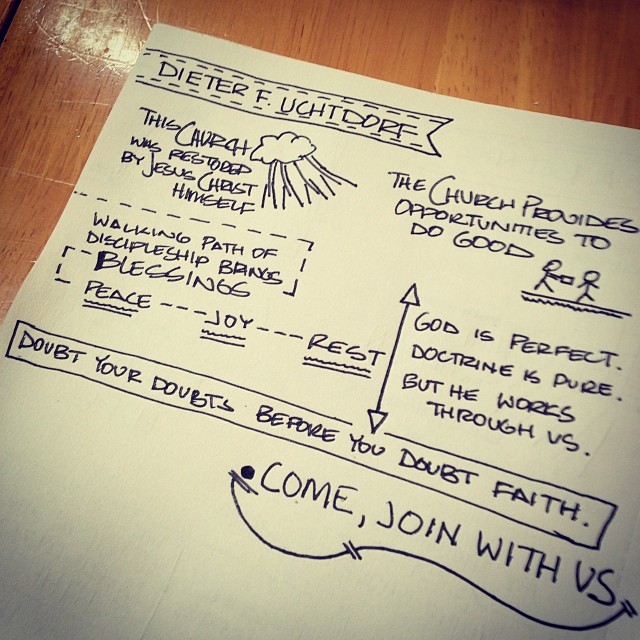 DIETER F. UCHTDORF
THIS CHURCH
WAS RESTORED
BY JESUS CHRIST
HIMSELF
WALKING PATH OF
DISCIPLESHIP BRINGS
BLESSINGS
PEACE --- JOY --- REST
THE CHURCH PROVIDES
OPPORTUNITIES TO
DO GOOD
GOD IS PERFECT.
DOCTRINE IS PURE.
BUT HE WORKS
THROUGH US.
DOUBT YOUR DOUBTS BEFORE YOU DOUBT FAITH.
COME, JOIN WITH US